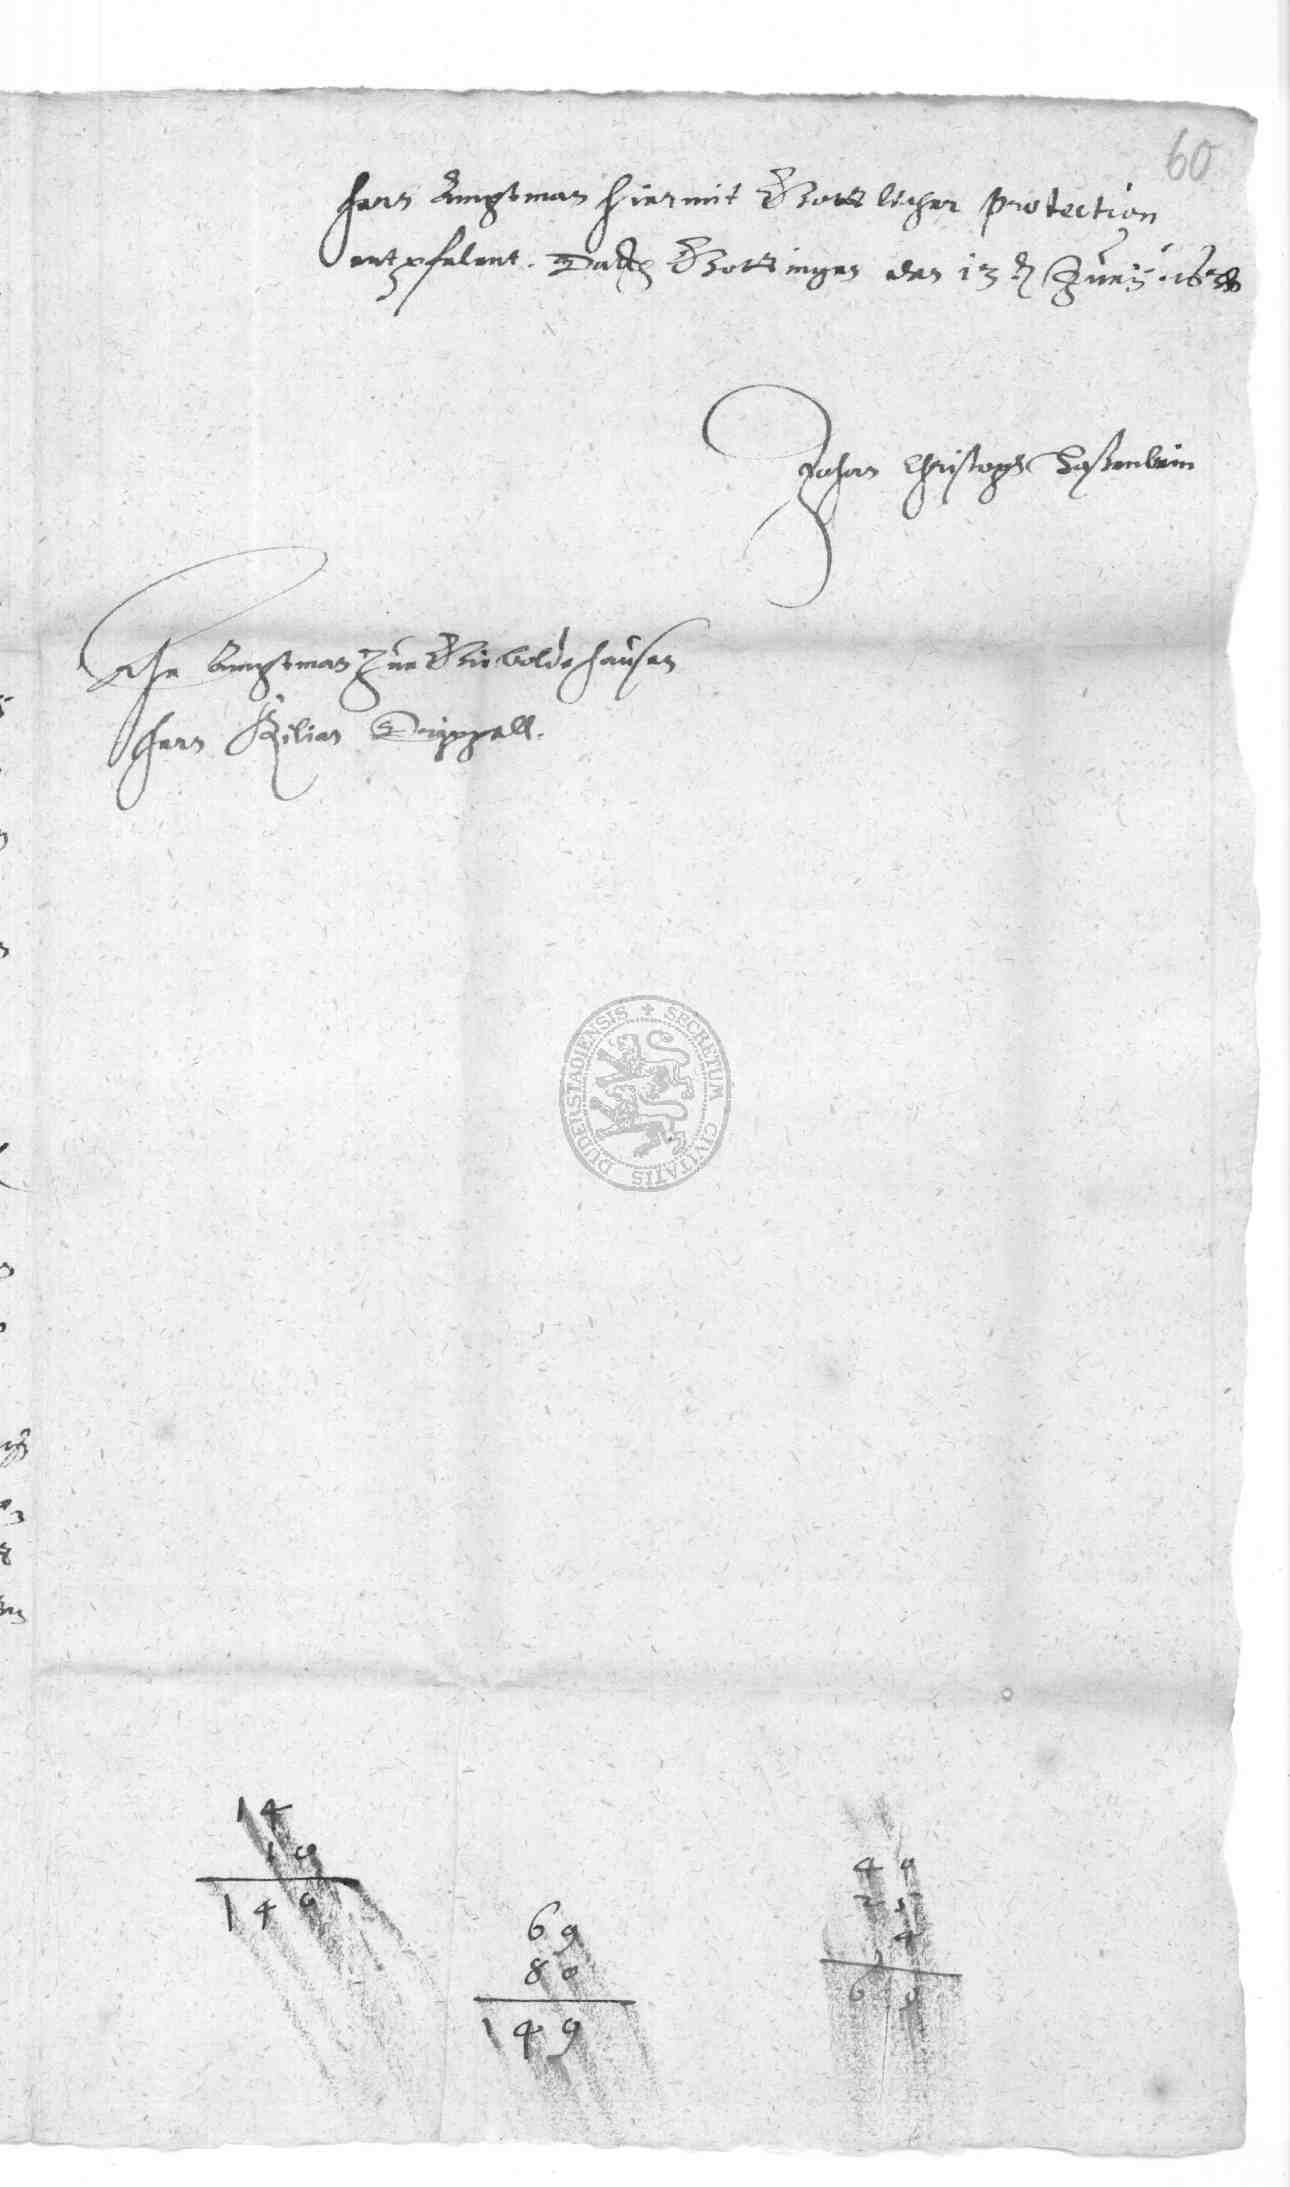 60
hern Amptman hiermit Gottlicher Protection
entpfelent. Datum Gottingen den 13 Juny
Johan Christoph
Ahn Amptman zue Gieboldehausen
hern Kilian Düppell.
SECRETUM CIVITATIS DUDERSTADIENSIS
14
149
69
80
149
4
4
6